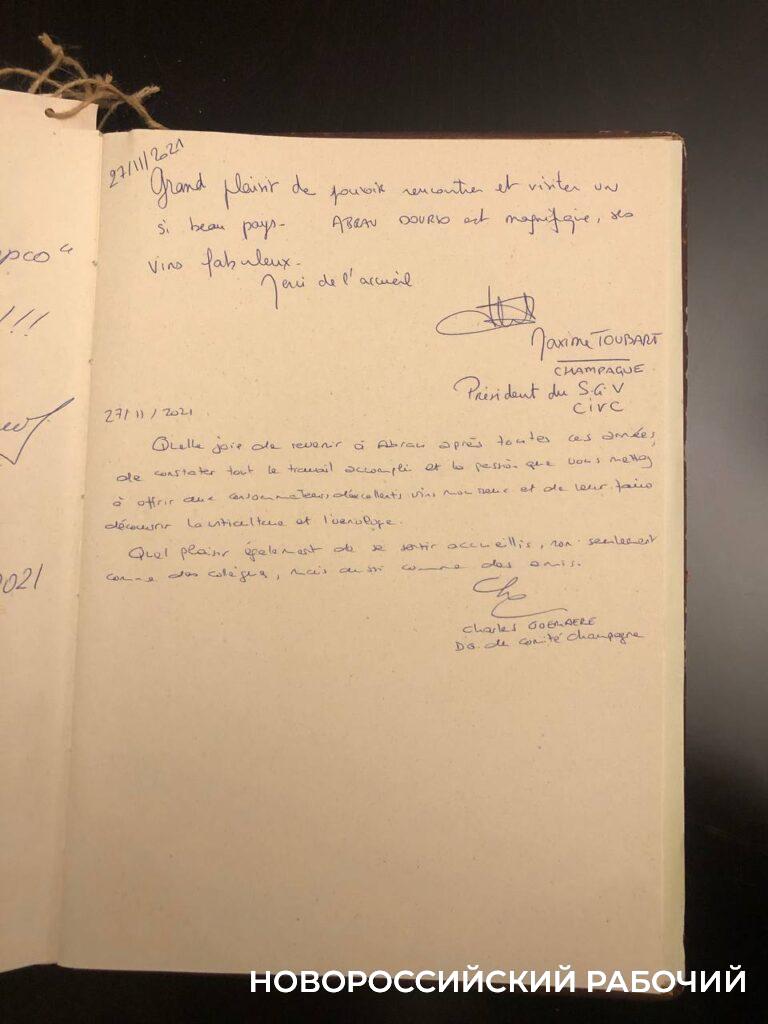 рсо“
!!!
2021
27/11/2021
Grand plaisir de pouvoir rencontrer et visiter un
si beau pays- ABRAU DOURSO est magnifique, ses
vins fabuleux-
Merci de l'accueil
Maxime TOUBART
CHAMPAGNE
Président du S.G.V
CIVC
27/11/2021.
Quelle joie de revenir à Abrau après toutes ces années,
de constater tout le travail accompli et la passion que vous mettez
à offrir aux consommateurs d'excellents vins et de leur faire
découvrir la viticulture et l'oenologie.
Quel plaisir également de se sentir accueillis, non seulement
comme des collègues, mais aussi comme des amis.
Charles GOEMAERE
DG. du comité champagne
НОВОРОССИЙСКИЙ РАБОЧИЙ